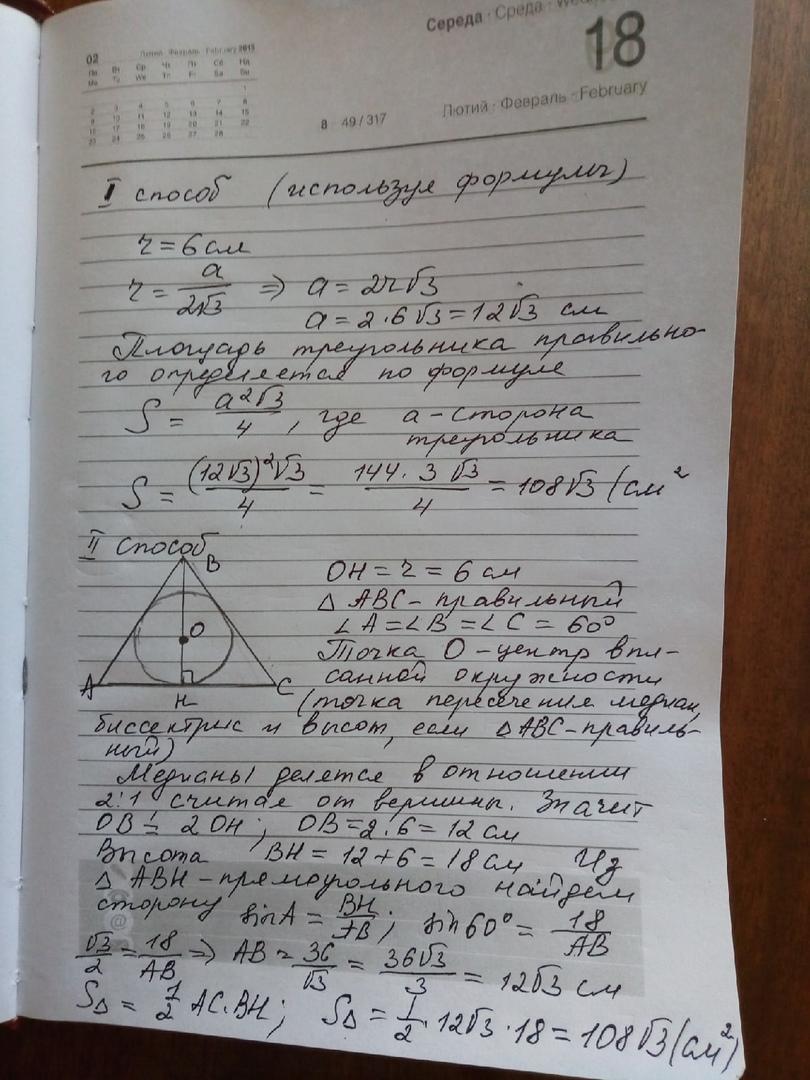 Середа · Среда ·
18
02 Лютий Февраль February 2015
Лютий · Февраль · February
8 49/317
I способ (используя формулы)
r = 6 см
r = a/2√3 ⇒ a = 2r√3
a = 2·6√3 = 12√3 см
Площадь треугольника правильно-
го определяется по формуле
S = a²√3/4, где a - сторона
треугольника
S = (12√3)²√3/4 = 144·3√3/4 = 108√3 (см²
II способ
B
O
A
H
C
OH = r = 6 см
Δ ABC - правильный
∠A = ∠B = ∠C = 60°
Точка O - центр впи-
санной окружности
(точка пересечения медиан,
биссектрис и высот, если ΔABC - правиль-
ный)
Медианы делятся в отношении
2:1 считая от вершины. Значит
OB = 2OH; OB = 2·6 = 12 см
Высота BH = 12 + 6 = 18 см Из
Δ ABH - прямоугольного найдем
сторону sin A = BH/AB; sin 60° = 18/AB
√3/2 = 18/AB ⇒ AB = 36/√3 = 36√3/3 = 12√3 см
S△ = 1/2 AC·BH; S△ = 1/2·12√3·18 = 108√3 (см²)